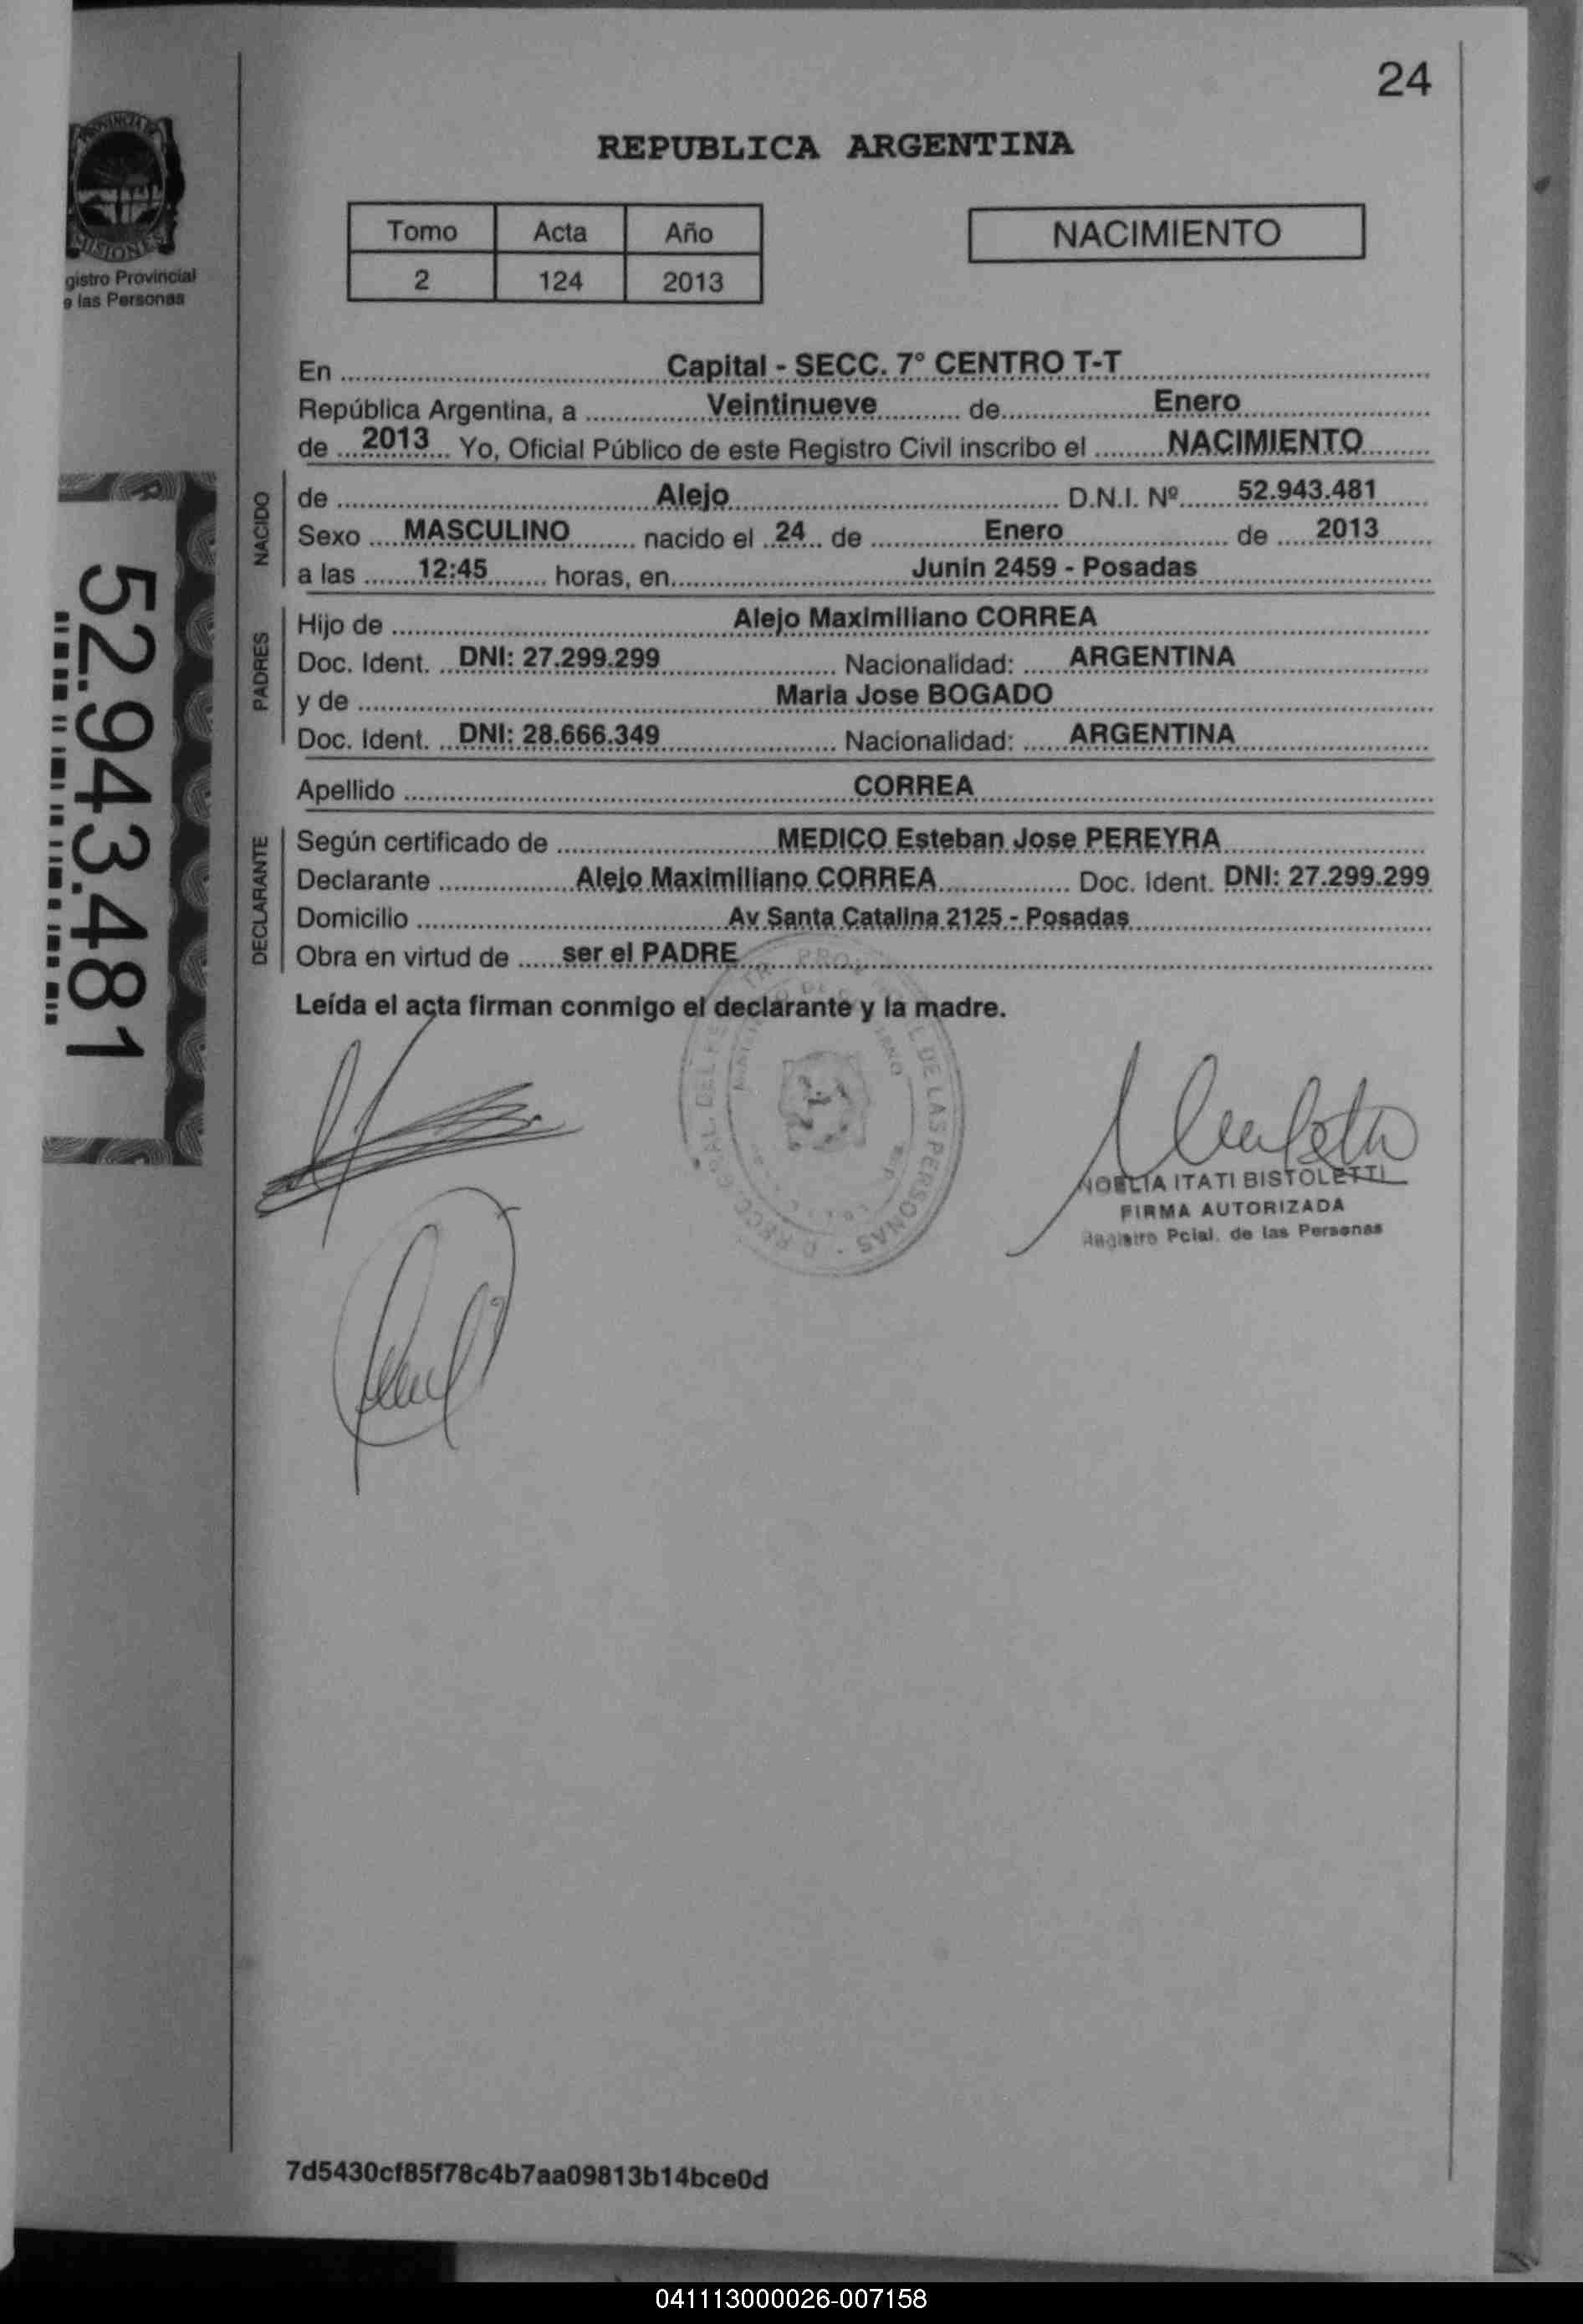 24
PROVINCIA DE
MISIONES
gistro Provincial
e las Personas
52.943.481
REPUBLICA ARGENTINA
Tomo Acta Año
2 124 2013
NACIMIENTO
En Capital - SECC. 7° CENTRO T-T
República Argentina, a Veintinueve de Enero
de 2013 Yo, Oficial Público de este Registro Civil inscribo el NACIMIENTO
NACIDO
de Alejo D.N.I. Nº 52.943.481
Sexo MASCULINO nacido el 24 de Enero de 2013
a las 12:45 horas, en Junin 2459 - Posadas
PADRES
Hijo de Alejo Maximiliano CORREA
Doc. Ident. DNI: 27.299.299 Nacionalidad: ARGENTINA
y de Maria Jose BOGADO
Doc. Ident. DNI: 28.666.349 Nacionalidad: ARGENTINA
Apellido CORREA
DECLARANTE
Según certificado de MEDICO Esteban Jose PEREYRA
Declarante Alejo Maximiliano CORREA Doc. Ident. DNI: 27.299.299
Domicilio Av Santa Catalina 2125 - Posadas
Obra en virtud de ser el PADRE
Leída el acta firman conmigo el declarante y la madre.
DE LAS PERSONAS
NOELIA ITATI BISTOLETTI
FIRMA AUTORIZADA
Registro Pcial. de las Personas
7d5430cf85f78c4b7aa09813b14bce0d
041113000026-007158